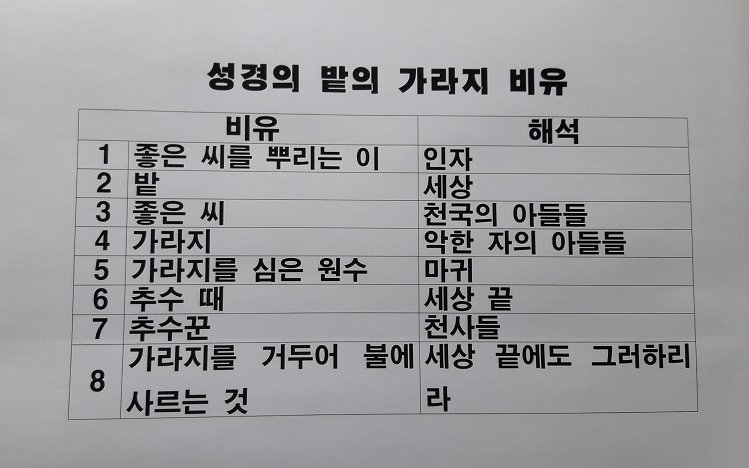 성경의 밭의 가라지 비유
비유 해석
1 좋은 씨를 뿌리는 이 인자
2 밭 세상
3 좋은 씨 천국의 아들들
4 가라지 악한 자의 아들들
5 가라지를 심은 원수 마귀
6 추수 때 세상 끝
7 추수꾼 천사들
8 가라지를 거두어 불에 세상 끝에도 그러하리
사르는 것 라